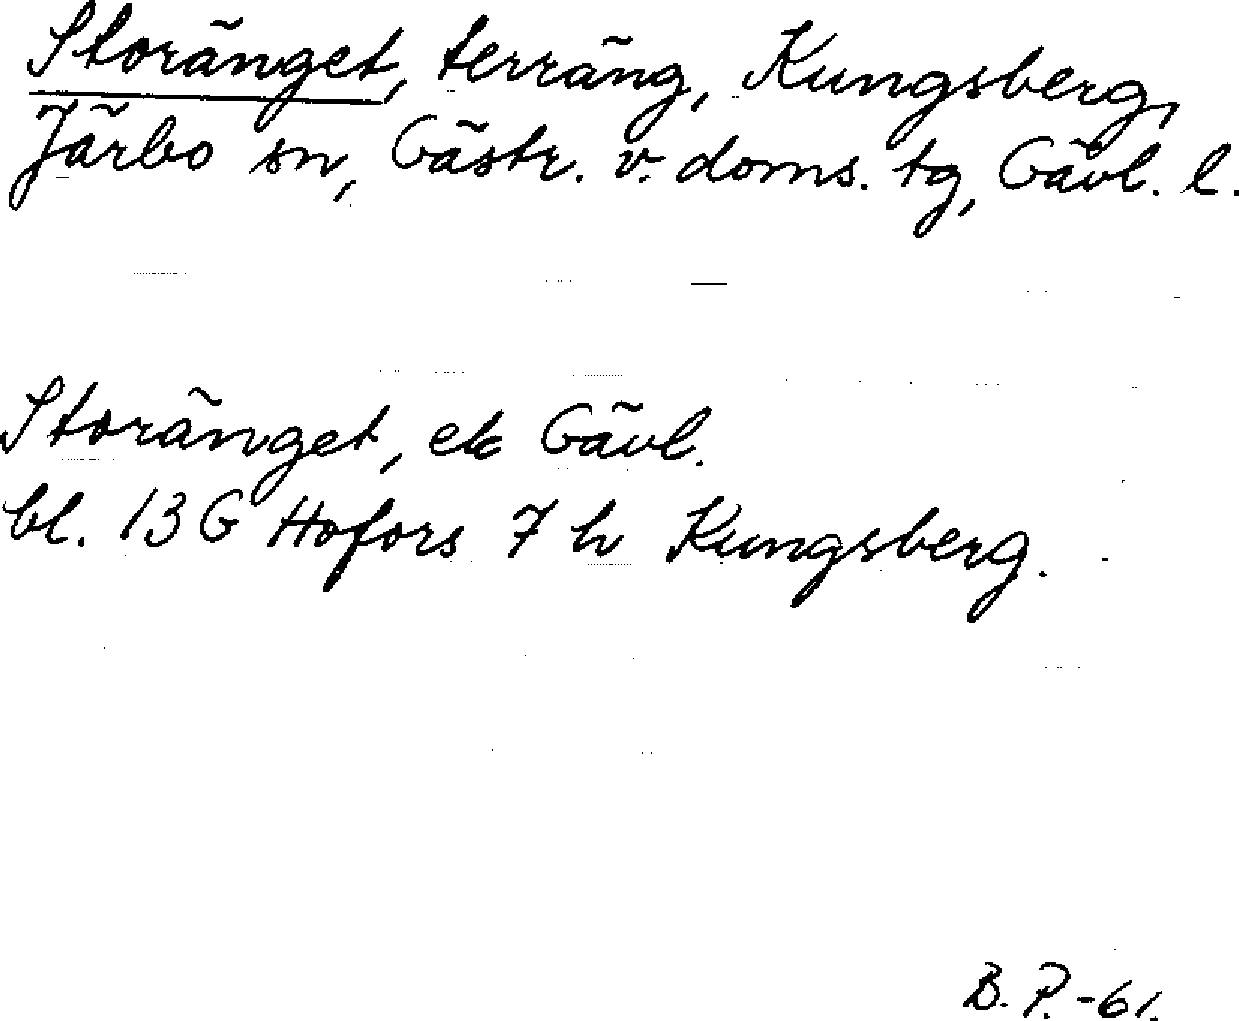 Storänget, terräng, Kungsberg,
Järbo sn, Gästr. v. doms. tg, Gävl. l.
Storänget, ek Gävl.
bl. 13 G Hofors 7 h Kungsberg.
B. P. -61.